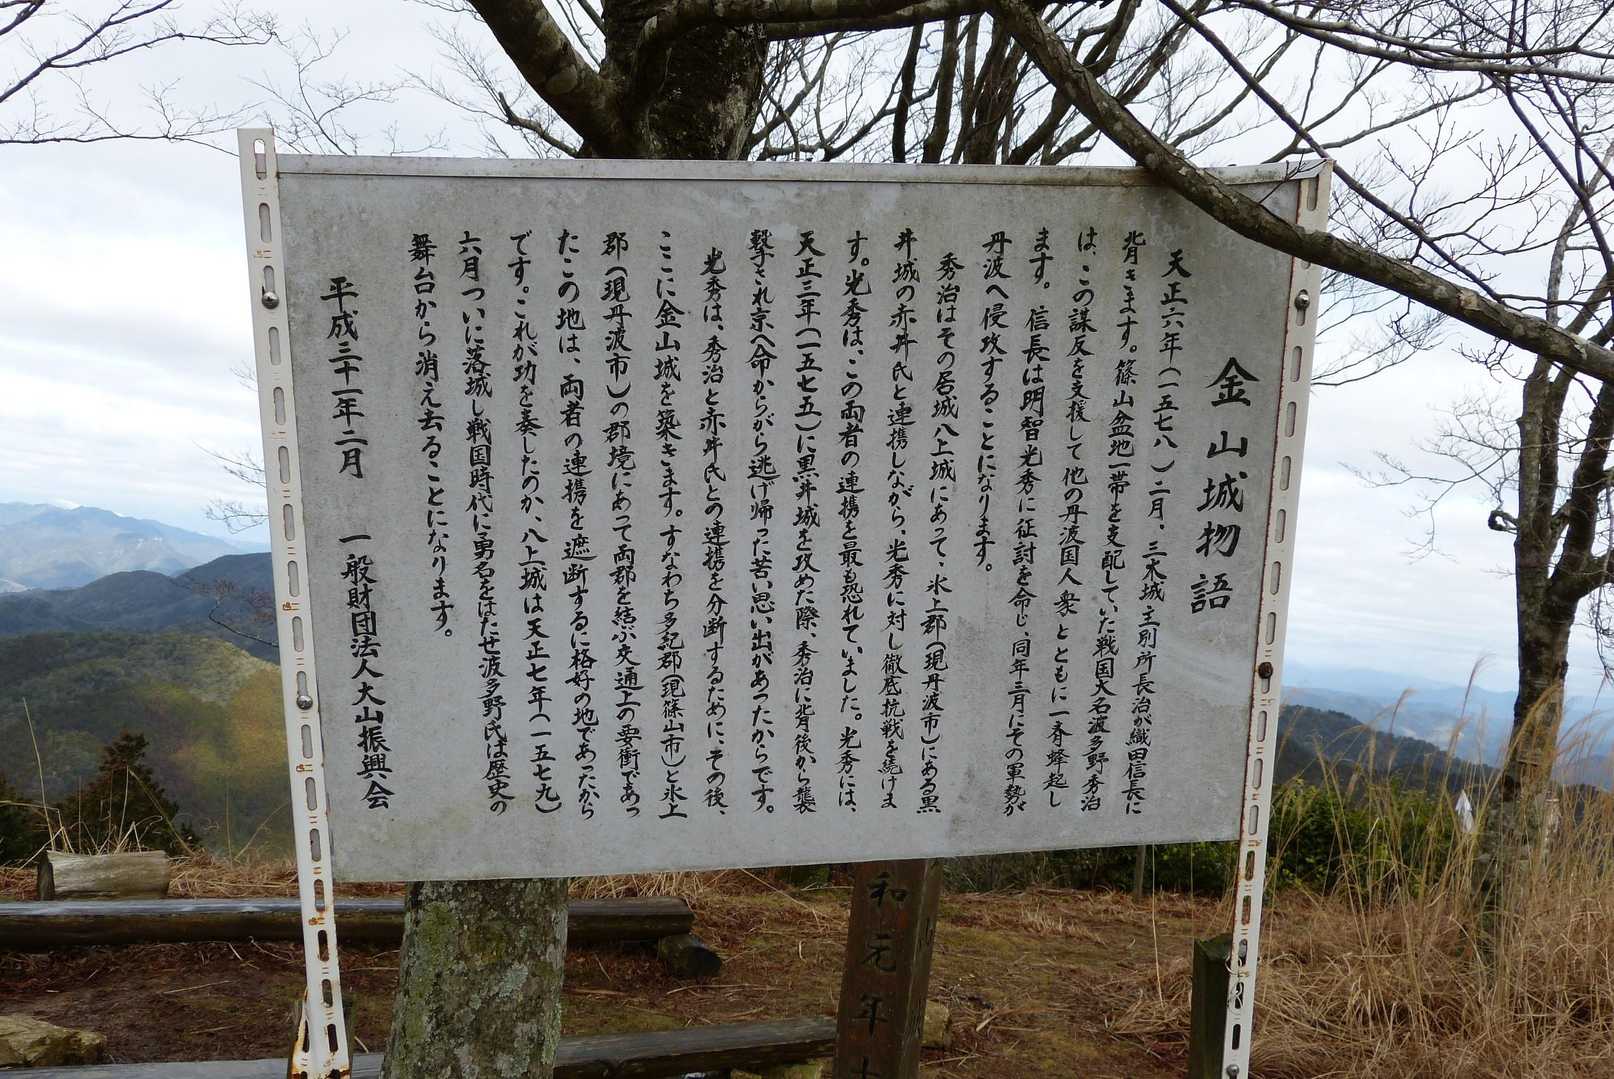 金山城物語
天正六年(一五七八)二月、三木城主別所長治が織田信長に
背きます。篠山盆地一帯を支配していた戦国大名波多野秀治
は、この謀反を支援して他の丹波国人衆とともに一斉蜂起し
ます。信長は明智光秀に征討を命じ、同年三月にその軍勢が
丹波へ侵攻することになります。
秀治はその居城八上城にあって、氷上郡(現丹波市)にある黒
井城の赤井氏と連携しながら、光秀に対し徹底抗戦を続けま
す。光秀は、この両者の連携を最も恐れていました。光秀は、
天正三年(一五七五)に黒井城を攻めた際、秀治に背後から襲
撃され京へ命からがら逃げ帰った苦い思い出があったからです。
光秀は、秀治と赤井氏との連携を分断するために、その後、
ここに金山城を築きます。すなわち多紀郡(現篠山市)と氷上
郡(現丹波市)の郡境にあって両郡を結ぶ交通上の要衝であっ
たこの地は、両者の連携を遮断するに格好の地であったから
です。これが功を奏したのか、八上城は天正七年(一五七九)
六月ついに落城し戦国時代に勇名をはたせ波多野氏は歴史の
舞台から消え去ることになります。
平成三十一年二月　一般財団法人大山振興会
和元年十